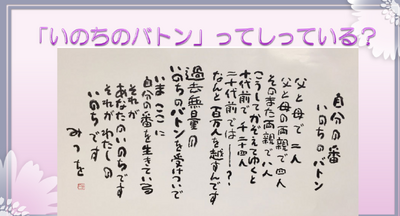 「いのちのバトン」ってしっている？
自分の番
いのちのバトン
父と母で二人
父と母の両親で四人
そのまた両親で八人
こうしてかぞえてゆくと
十代前で千二十四人
二十代前では―？
なんと百万人を越すんです
過去無量の
いのちのバトンを受けついで
いまここに
自分の番を生きている
それが
あなたのいのちです
それがわたしの
いのちです
みつを